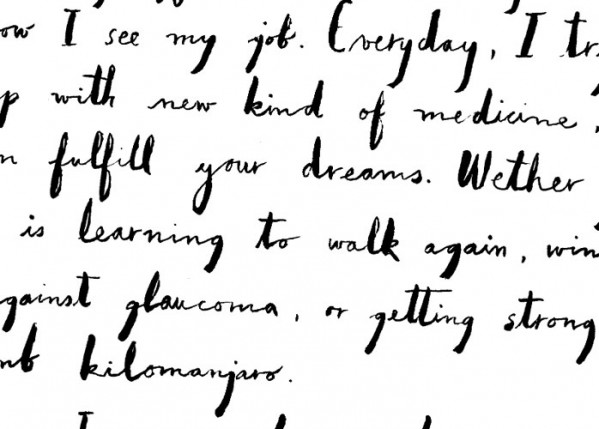 ow I see my job. Everyday, I tr
p with new kind of medicine,
n fulfill your dreams. Wether
is learning to walk again, win
gainst glaucoma, or getting strong
mb kilomanjaro.